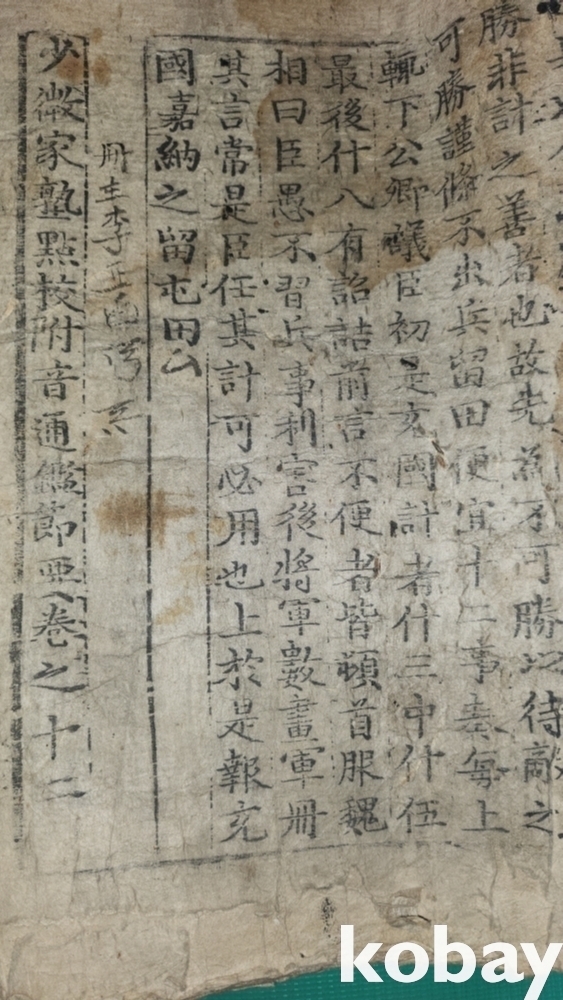 勝非計之善者也故先為不可勝以待敵之
可勝謹條不出兵留田便宜十二事奏每上
輒下公卿議臣初是充國計者什三中什伍
最後什八有詔詰前言不便者皆頓首服魏
相曰臣愚不習兵事利害後將軍數畫軍冊
其言常是臣任其計可必用也上於是報充
國嘉納之留屯田
冊主李
少微家塾點校附音通鑑節要卷之十二
kobay